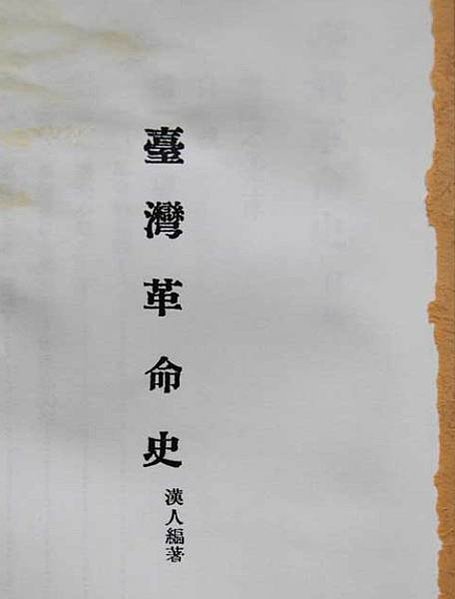 臺灣革命史
漢人編著